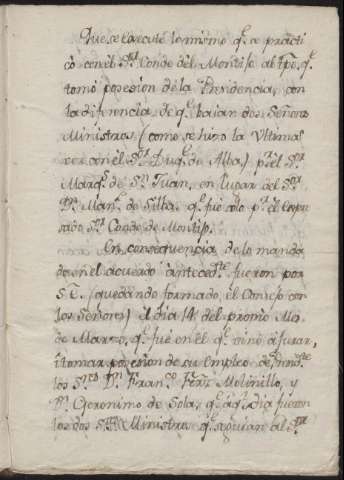 Que se execute lo mismo q.e se practi
có con el S.or Conde del Montijo al tpo. q.e
tomó posesion de la Presidencia, con
la diferencia de q.e baian dos Señores
Ministros (como se hizo la Ultima
vez con el S.or Duq.e de Alba) p.r el S.or
Marq.s de S.n Juan, en lugar del S.or
D.n Man.l de Silba, q.e fue solo p.r el expre
sado S.or Conde de Montijo.
En consequencia de lo manda
do en el acuerdo anteced.te fueron por
S.E. (quedando formado el Consejo con
los Señores) el dia 14 del propio Mes
de Marzo, q.e fue en el q.e vino a jurar,
i tomar posesion de su empleo de
los S.res D.n Fran.co Fern.z Molinillo, y
D.n Geronimo de Sola, q.e aq.l dia fueron
los dos S.res Ministros q.e seguian al S.or